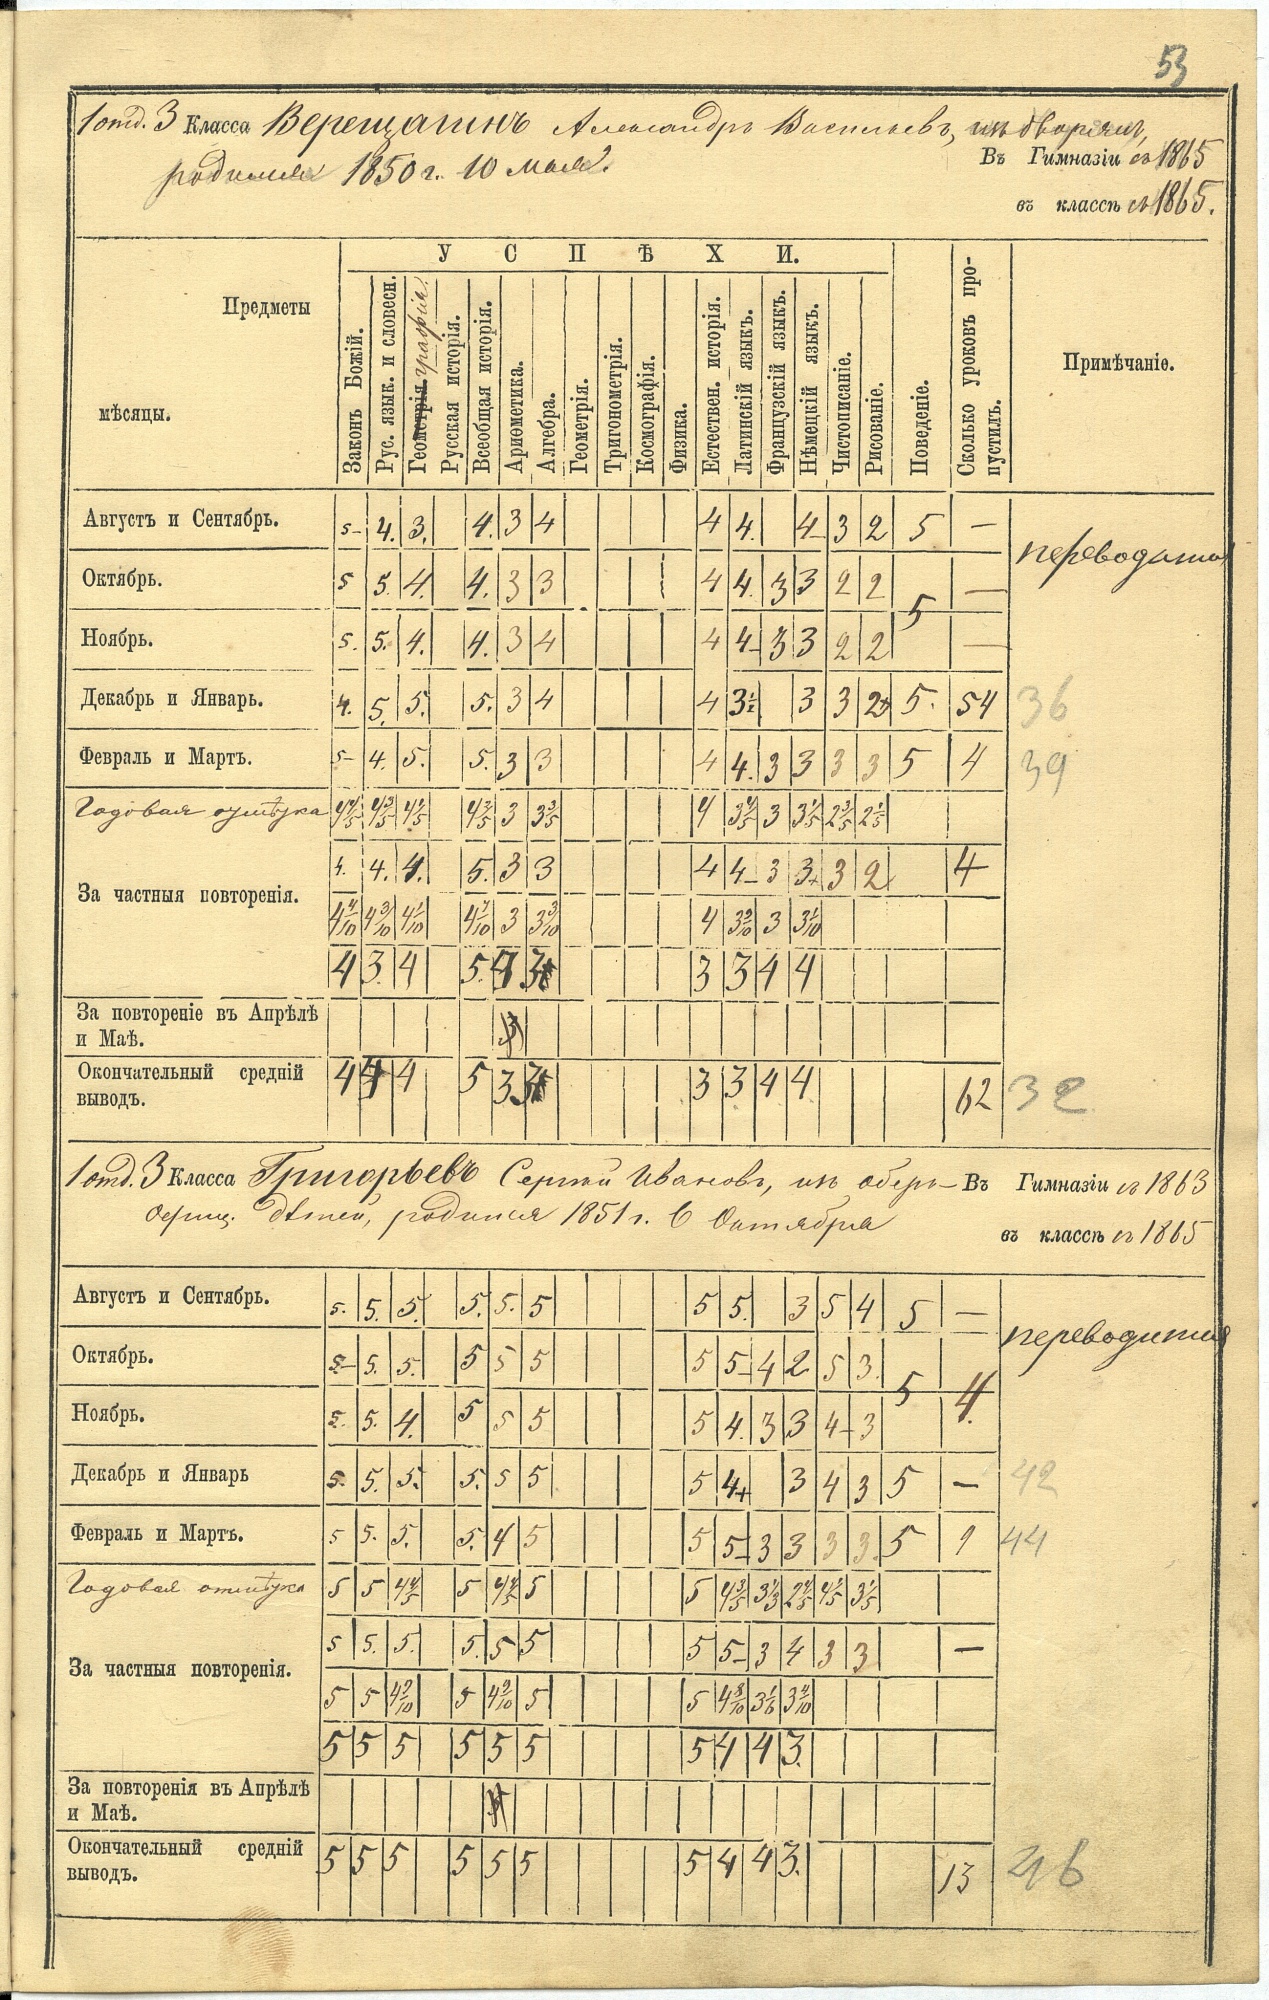 53
1 отд. 3 Класса Верещагинъ Александръ Васильевъ, изъ дворянъ,
родился 1850 г. 10 мая.
Въ Гимназіи съ 1865
въ классѣ съ 1865.
УСПѢХИ.
Предметы
мѣсяцы.
Законъ Божій.
Рус. язык. и словесн.
Геометрія. графія.
Русская исторія.
Всеобщая исторія.
Ариѳметика.
Алгебра.
Геометрія.
Тригонометрія.
Космографія.
Физика.
Естествен. исторія.
Латинскій языкъ.
Французскій языкъ.
Нѣмецкій языкъ.
Чистописаніе.
Рисованіе.
Поведеніе.
Сколько уроковъ пропустилъ.
Примѣчаніе.
Августъ и Сентябрь. 5- 4. 3. 4. 3 4 4 4. 4- 3 2 5 —
переводится
Октябрь. 5 5. 4. 4. 3 3 4 4. 3 3 2 2 5 —
Ноябрь. 5. 5. 4. 4. 3 4 4 4- 3 3 2 2 —
Декабрь и Январь. 4. 5. 5. 5. 3 4 4 3½ 3 3 2+ 5. 54 36
Февраль и Мартъ. 5- 4. 5. 5. 3 3 4 4. 3 3 3 3 5 4 39
Годовая отмѣтка 4 4/5 4 3/5 4 1/5 4 2/5 3 3 3/5 4 3 4/5 3 3 1/5 2 3/5 2 1/5
За частныя повторенія. 4. 4. 4. 5. 3 3 4 4- 3 3+ 3 2 4
4 4/10 4 3/10 4 1/10 4 7/10 3 3 3/10 4 3 9/10 3 3 1/10
4 3. 4 5. 3 3 3 4 4
За повтореніе въ Апрѣлѣ
и Маѣ. 3
Окончательный средній
выводъ. 4 4 4 5 3 3 3 3 4 4 62 32
1 отд. 3 Класса Григорьевъ Сергѣй Ивановъ, изъ оберъ-
офиц. дѣтей, родился 1851 г. 6 Октября
Въ Гимназіи съ 1863
въ классѣ съ 1865
Августъ и Сентябрь. 5. 5. 5. 5. 5. 5 5 5. 3 5 4 5 —
переводится
Октябрь. 5- 5. 5. 5 5 5 5 5- 4 2 5 3. 5 4.
Ноябрь. 5. 5. 4. 5 5 5 5 4. 3 3 4- 3
Декабрь и Январь 5. 5. 5. 5. 5 5 5 4+ 3 4 3 5 — 42
Февраль и Мартъ. 5 5. 5. 5. 4 5 5 5- 3 3 3 3. 5 9 44
Годовая отмѣтка 5 5 4 4/5 5 4 4/5 5 5 4 3/5 3 1/3 2 4/5 4 1/5 3 1/5
За частныя повторенія. 5 5. 5. 5. 5 5 5 5- 3 4 3 3 —
5 5 4 9/10 5 4 9/10 5 5 4 8/10 3 1/6 3 4/10
5 5 5 5 5 5 5 4 4 3.
За повторенія въ Апрѣлѣ
и Маѣ.
Окончательный средній
выводъ. 5 5 5 5 5 5 5 4 4 3. 13 46